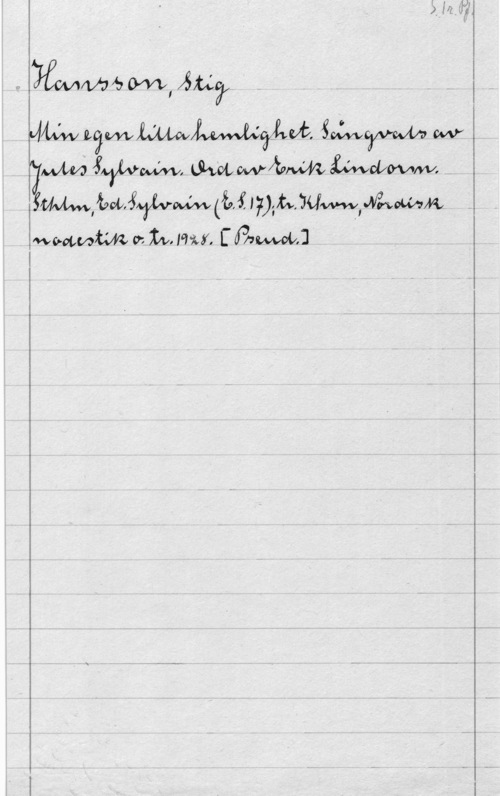 S. 1 r. Pf.
Hansson, Stig
Min egen lilla hemlighet. Sångvals av
Jules Sylvain. Ord av Erik Lindorm.
Sthlm, Ed. Sylvain (E.S. 17); tr. Khvn, Nordisk
nodestik o. tr. 1928. [Pseud.]